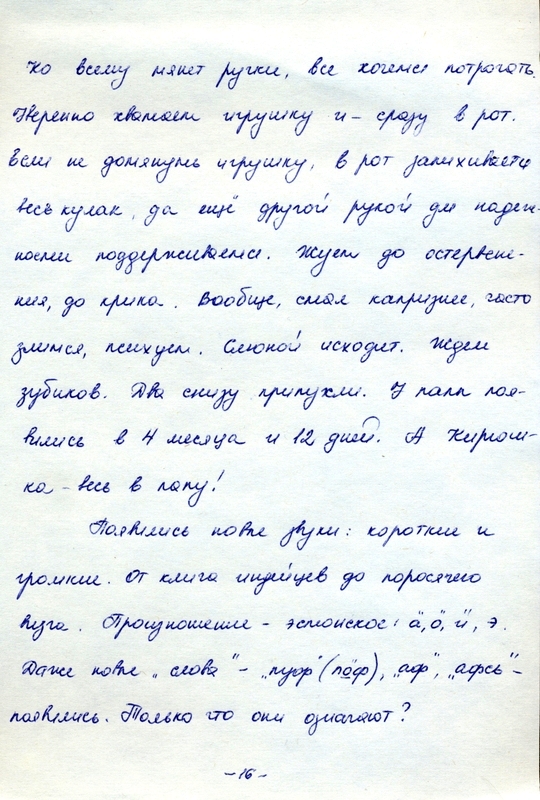 Ко всему тянет ручки, все хочется потрогать.
Уверенно хватаем игрушку и – сразу в рот.
Если не дотянуть игрушку, в рот запихивается
весь кулак, да ещё другой рукой для надеж-
ности поддерживается. Жуем до остервене-
ния, до крика. Вообще, стал капризнее, часто
злится, психует. Слюной исходит. Ждем
зубиков. Два снизу припухли. У папы поя-
вились в 4 месяца и 12 дней. А Кирюш-
ка – весь в папу!
Появились новые звуки: короткие и
громкие. От клича индейцев до поросячего
визга. Произношение – эстонское: ä, ö, ü, э.
Даже новые „слова" – „пуф" (пӧф), „аф", „афсь" –
появились. Только что они означают?
– 16 –